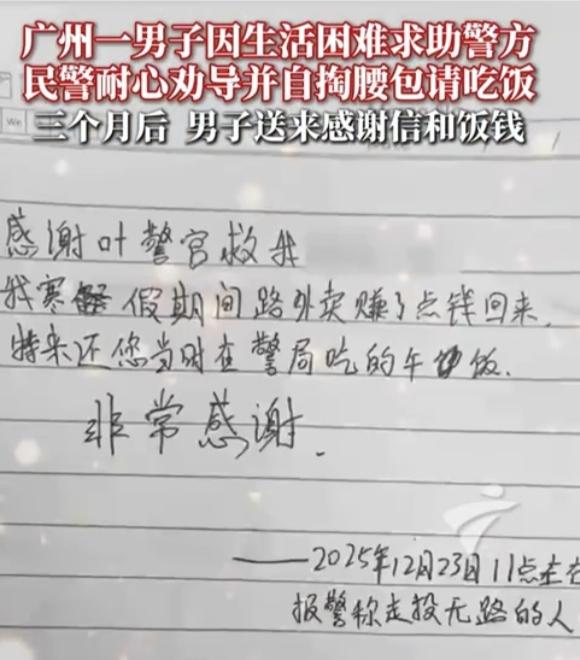 广州一男子因生活困难求助警方
民警耐心劝导并自掏腰包请吃饭
三个月后 男子送来感谢信和饭钱
感谢叶警官救我
我寒假期间路外卖赚了点钱回来,
特来还您当时在警局吃的午饭.
非常感谢.
——2025年12月23日11点左右
报警称走投无路的人